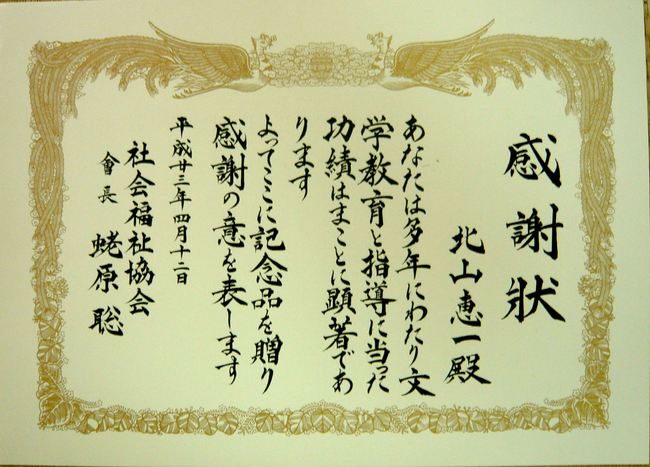 感謝狀
北山恵一殿
あなたは多年にわたり文
学教育と指導に当った
功績はまことに顕著であ
ります
よってここに記念品を贈り
感謝の意を表します
平成廿三年四月十二日
社会福祉協会
會長 蛯原聡